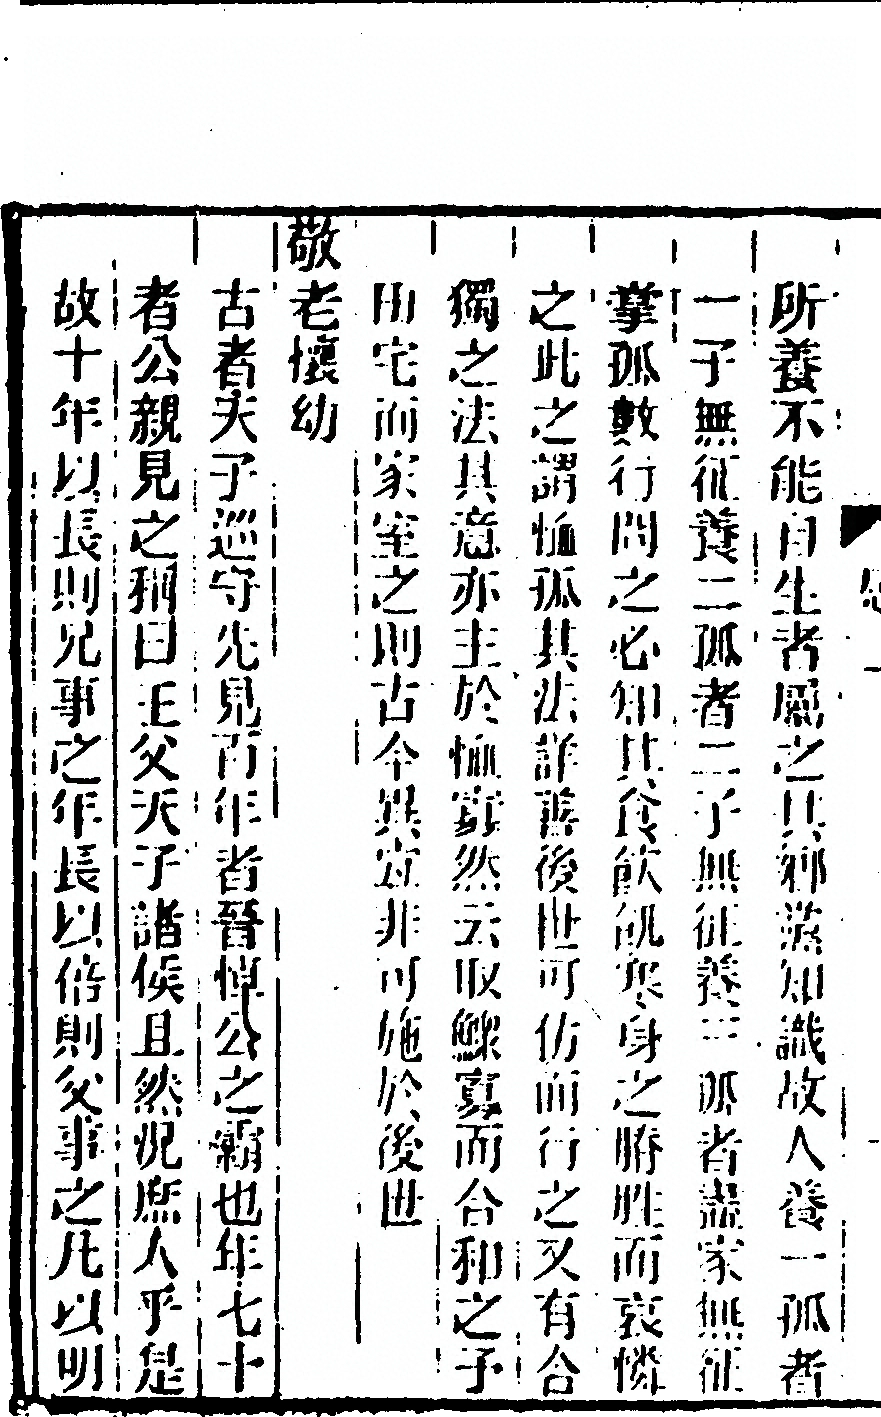 所養不能自生者屬之其鄉黨知識故人養一孤者
一子無征養二孤者二子無征養三孤者盡家無征
掌孤數行問之必知其食飲飢寒身之膌胜而哀憐
之此之謂恤孤其法詳善後世可仿而行之又有合
獨之法其意亦主於恤寡然云取鰥寡而合和之予
田宅而家室之則古今異宜非可施於後世
敬老懷幼
古者天子巡守先見百年者晉悼公之霸也年七十
者公親見之稱曰王父天子諸侯且然況庶人乎是
故十年以長則兄事之年長以倍則父事之凡以明